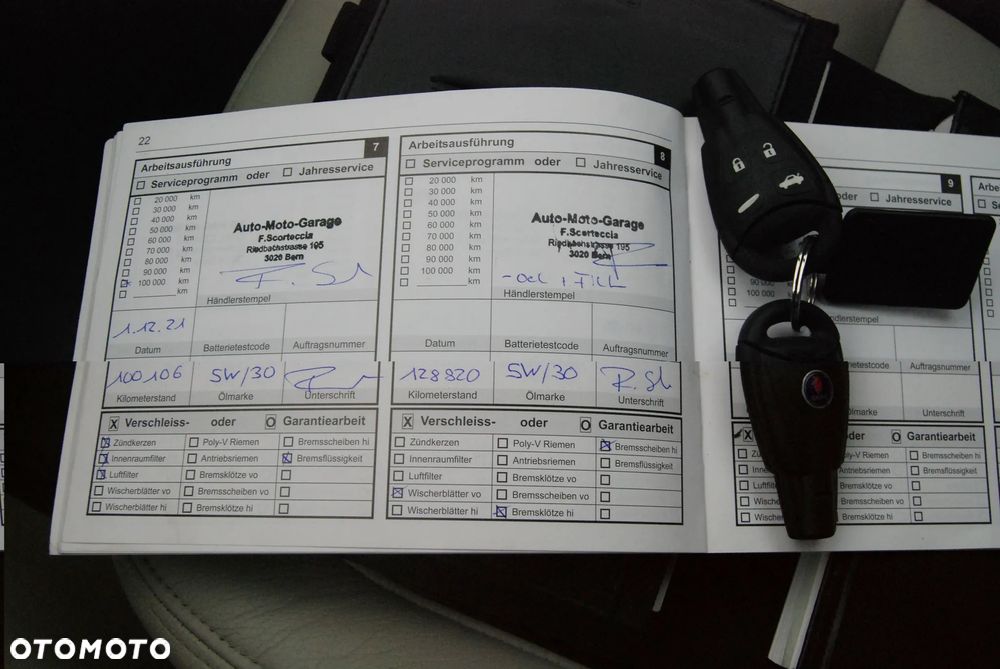 22
7
Arbeitsausführung
Serviceprogramm oder Jahresservice
20 000 km
30 000 km
40 000 km
50 000 km
60 000 km
70 000 km
80 000 km
90 000 km
100 000 km
km
Auto-Moto-Garage
F.Scorteccia
Riedbachstrasse 195
3020 Bern
Händlerstempel
1.12.21
Datum Batterietestcode Auftragsnummer
100106 5W/30
Kilometerstand Ölmarke Unterschrift
X Verschleiss- oder O Garantiearbeit
Zündkerzen Poly-V Riemen Bremsscheiben hi
Innenraumfilter Antriebsriemen Bremsflüssigkeit
Luftfilter Bremsklötze vo
Wischerblätter vo Bremsscheiben vo
Wischerblätter hi Bremsklötze hi
8
Arbeitsausführung
Serviceprogramm oder Jahresservice
20 000 km
30 000 km
40 000 km
50 000 km
60 000 km
70 000 km
80 000 km
90 000 km
100 000 km
km
Auto-Moto-Garage
F.Scorteccia
Riedbachstrasse 195
3020 Bern
Händlerstempel
Datum Batterietestcode Auftragsnummer
128820 5W/30
Kilometerstand Ölmarke Unterschrift
X Verschleiss- oder O Garantiearbeit
Zündkerzen Poly-V Riemen Bremsscheiben hi
Innenraumfilter Antriebsriemen Bremsflüssigkeit
Luftfilter Bremsklötze vo
Wischerblätter vo Bremsscheiben vo
Wischerblätter hi Bremsklötze hi
9
oder Jahresservice
90 000
100 000
Auftragsnummer
Ölmarke Unterschrift
X oder O Garantiearbeit
Bremsscheiben hi
Bremsflüssigkeit
Bremsklötze vo
Bremsscheiben vo
Bremsklötze hi
OTOMOTO